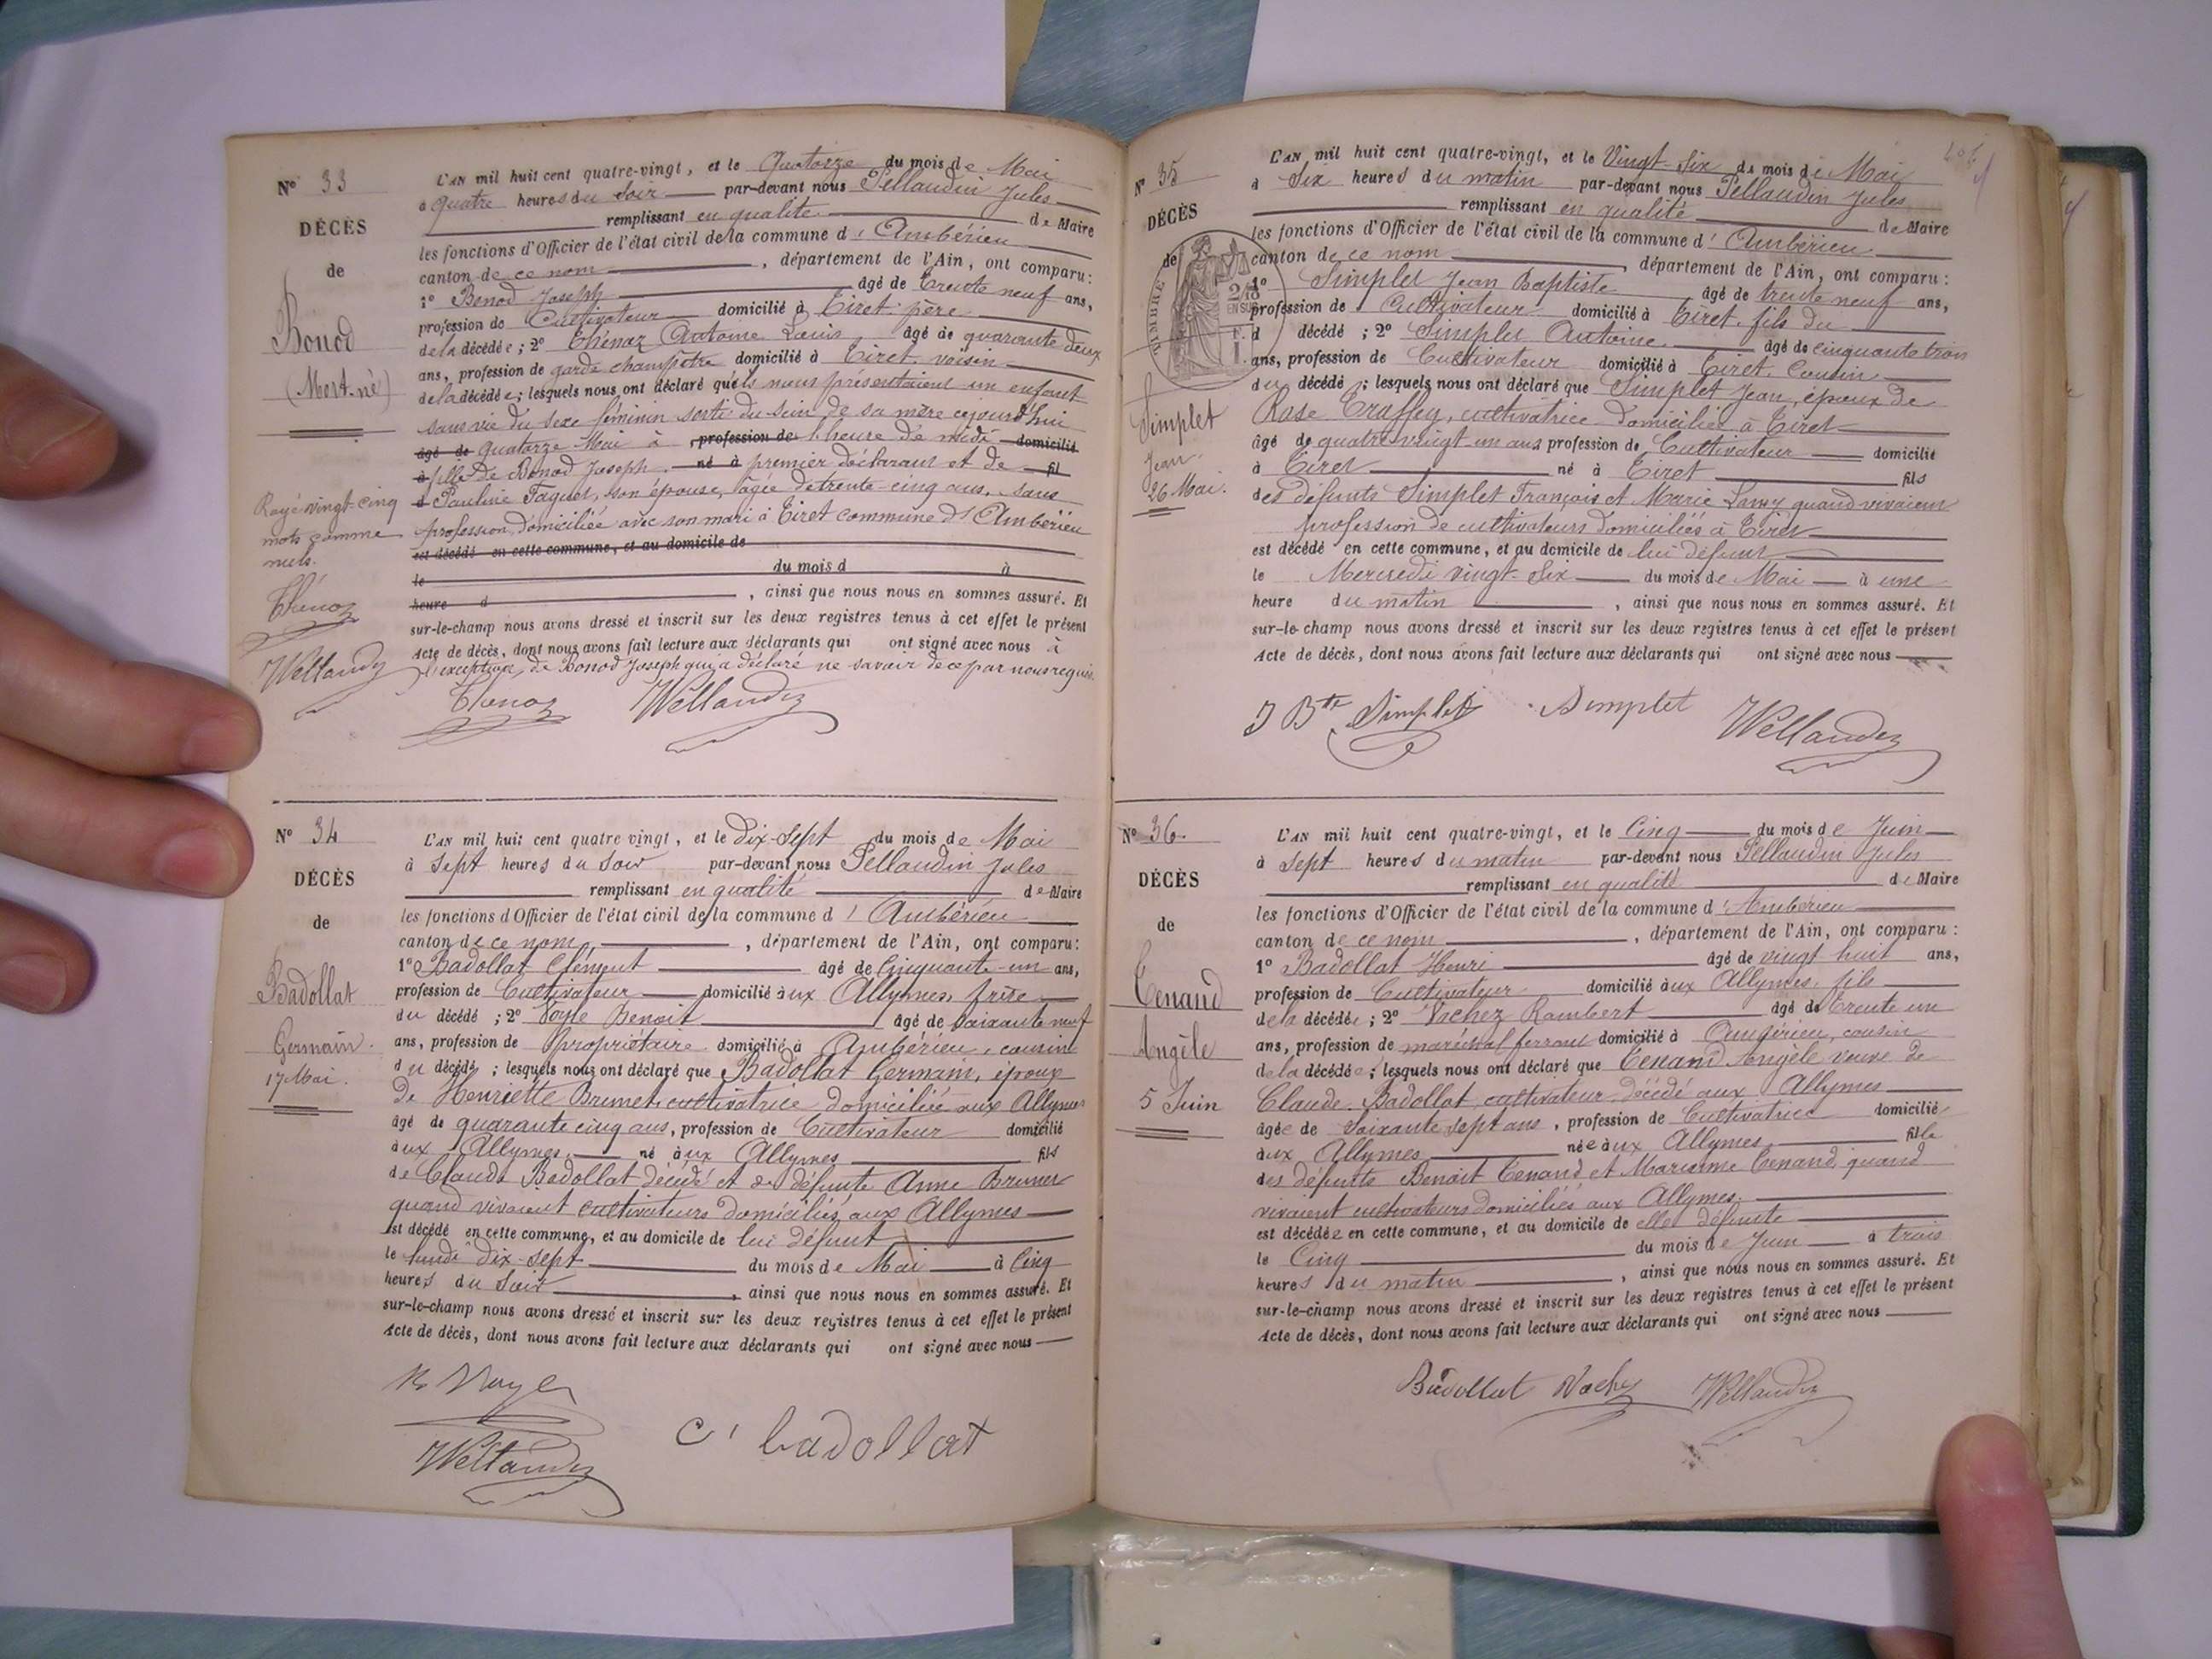 N° 33
DÉCÈS
de
Bonod
(Mort-né)
Rayé vingt-cinq
mots comme
nuls.
Thenoz
L'AN mil huit cent quatre-vingt, et le Quatorze du mois de Mai
à quatre heures du Soir par-devant nous Pellaudin Jules
remplissant en qualité de Maire
les fonctions d'Officier de l'état civil de la commune d'Ambérieu
canton de ce nom, département de l'Ain, ont comparu:
1° Benod Joseph âgé de trente neuf ans,
profession de Cultivateur domicilié à Tiret. père
de la décédée; 2° Thénoz Antoine Louis âgé de quarante deux
ans, profession de garde champêtre domicilié à Tiret. voisin
de la décédée; lesquels nous ont déclaré qu'ils nous présentaient un enfant
sans vie du sexe féminin sorti du sein de sa mère cejourd'hui
âgé de quatorze Mai à profession de l'heure de midi domicilié
à fille de Bonod Joseph né à premier déclarant et de fil
d Pauline Faguet, son épouse, âgée de trente-cinq ans, sans
profession, domiciliée avec son mari à Tiret commune d'Ambérieu
est décédé en cette commune, et au domicile de
le du mois d à
heure d , ainsi que nous nous en sommes assuré. Et
sur-le-champ nous avons dressé et inscrit sur les deux registres tenus à cet effet le présent
Acte de décès, dont nous avons fait lecture aux déclarants qui ont signé avec nous à
l'exception de Bonod Joseph qui a déclaré ne savoir de ce par nous requis.
Thenoz
N° 34
DÉCÈS
de
Badollat
Germain.
17 Mai.
L'AN mil huit cent quatre-vingt, et le Dix-Sept du mois de Mai
à Sept heures du Soir par-devant nous Pellaudin Jules
remplissant en qualité de Maire
les fonctions d'Officier de l'état civil de la commune d'Ambérieu
canton de ce nom, département de l'Ain, ont comparu:
1° Badollat Clément âgé de Cinquante-un ans,
profession de Cultivateur domicilié aux Allymes, frère
du décédé; 2° Benoit âgé de Soixante neuf
ans, profession de Propriétaire domicilié à Ambérieu, cousin
du décédé; lesquels nous ont déclaré que Badollat Germain, époux
de Henriette Brunet cultivatrice domiciliée aux Allymes
âgé de quarante cinq ans, profession de Cultivateur domicilié
aux Allymes né aux Allymes fils
de Claude Badollat décédé et de défunte Anne Brunet
quand vivaient cultivateurs domiciliés aux Allymes
est décédé en cette commune, et au domicile de lui défunt
le lundi dix-sept du mois de Mai à Cinq
heures du Soir, ainsi que nous nous en sommes assuré. Et
sur-le-champ nous avons dressé et inscrit sur les deux registres tenus à cet effet le présent
Acte de décès, dont nous avons fait lecture aux déclarants qui ont signé avec nous
C' badollat
N° 35
DÉCÈS
de
TIMBRE
Simplet
Jean.
26 Mai.
L'AN mil huit cent quatre-vingt, et le Vingt-Six du mois de Mai
à Six heures du matin par-devant nous Pellaudin Jules
remplissant en qualité de Maire
les fonctions d'Officier de l'état civil de la commune d'Ambérieu
canton de ce nom, département de l'Ain, ont comparu:
1° Simplet Jean Baptiste âgé de trente neuf ans,
profession de Cultivateur domicilié à Tiret. fils du
d décédé; 2° Simplet Antoine âgé de cinquante trois
ans, profession de Cultivateur domicilié à Tiret. Cousin
du décédé; lesquels nous ont déclaré que Simplet Jean, époux de
Rose Traffey, cultivatrice domiciliée à Tiret
âgé de quatre vingt un ans profession de Cultivateur domicilié
à Tiret né à Tiret fils
des défunts Simplet François et Marie quand vivaient
profession de cultivateurs domiciliés à Tiret
est décédé en cette commune, et au domicile de lui défunt
le Mercredi vingt-Six du mois de Mai à une
heure du matin, ainsi que nous nous en sommes assuré. Et
sur-le-champ nous avons dressé et inscrit sur les deux registres tenus à cet effet le présent
Acte de décès, dont nous avons fait lecture aux déclarants qui ont signé avec nous
J Bte Simplet Simplet
N° 36.
DÉCÈS
de
Tenand
Angèle
5 Juin
L'AN mil huit cent quatre-vingt, et le Cinq du mois de Juin
à Sept heures du matin par-devant nous Pellaudin Jules
remplissant en qualité de Maire
les fonctions d'Officier de l'état civil de la commune d'Ambérieu
canton de ce nom, département de l'Ain, ont comparu:
1° Badollat Henri âgé de vingt huit ans,
profession de Cultivateur domicilié aux Allymes, fils
de la décédée; 2° Vachez Rambert âgé de trente un
ans, profession de maréchal ferrant domicilié à Ambérieu, cousin
de la décédée; lesquels nous ont déclaré que Tenand Angèle veuve de
Claude Badollat, cultivateur décédé aux Allymes
âgée de Soixante sept ans, profession de Cultivatrice domicilié
aux Allymes née aux Allymes fille
des défunts Benoit Tenand et Marianne Tenand, quand
vivaient cultivateurs domiciliés aux Allymes.
est décédée en cette commune, et au domicile de elle défunte
le Cinq du mois de Juin à trois
heures du matin, ainsi que nous nous en sommes assuré. Et
sur-le-champ nous avons dressé et inscrit sur les deux registres tenus à cet effet le présent
Acte de décès, dont nous avons fait lecture aux déclarants qui ont signé avec nous
Badollat Vachez